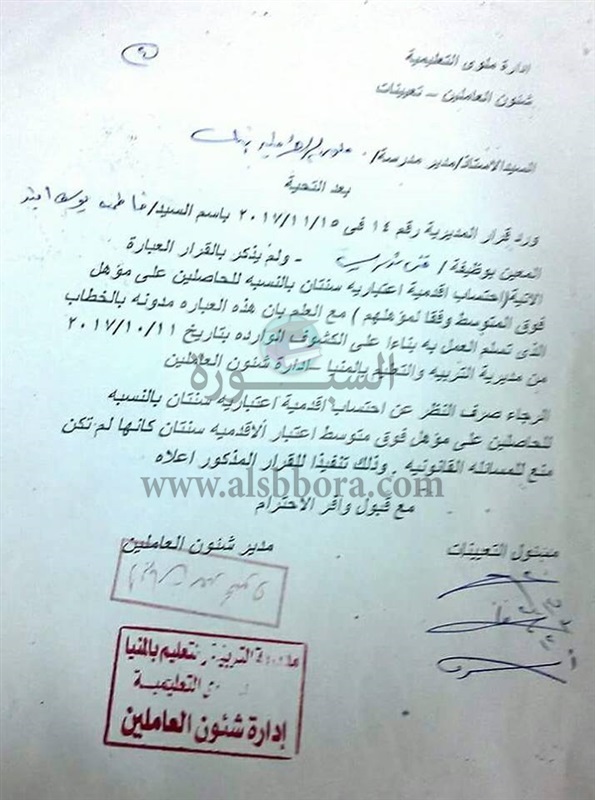 ادارة ملوى التعليمية
شئون العاملين - تعيينات
السيد الاستاذ/مدير مدرسة/
بعد التحية
ورد قرار المديرية رقم ١٤ فى ٢٠١٧/١١/١٥ باسم السيد/ فاطمه يوسف
المعين بوظيفة / - ولم يذكر بالقرار العبارة
الاتية(احتساب اقدمية اعتباريه سنتان بالنسبه للحاصلين على مؤهل
فوق المتوسط وفقا لمؤهلهم ) مع العلم بان هذه العباره مدونه بالخطاب
الذى تسلم العمل به بناءا على الكشوف الوارده بتاريخ ٢٠١٧/١٠/١١
من مديرية التربيه والتعليم بالمنيا - إدارة شئون العاملين
السبورة
الرجاء صرف النظر عن احتساب اقدمية اعتباريه سنتان بالنسبه
للحاصلين على مؤهل فوق متوسط اعتبار الاقدميه سنتان كانها لم تكن
منع للمسائله القانونيه . وذلك تنفيذا للقرار المذكور اعلاه
www.alsbbora.com
مع قبول وافر الاحترام
مسئول التعيينات
مدير شئون العاملين
مديرية التربية والتعليم بالمنيا
التعليمية
إدارة شئون العاملين